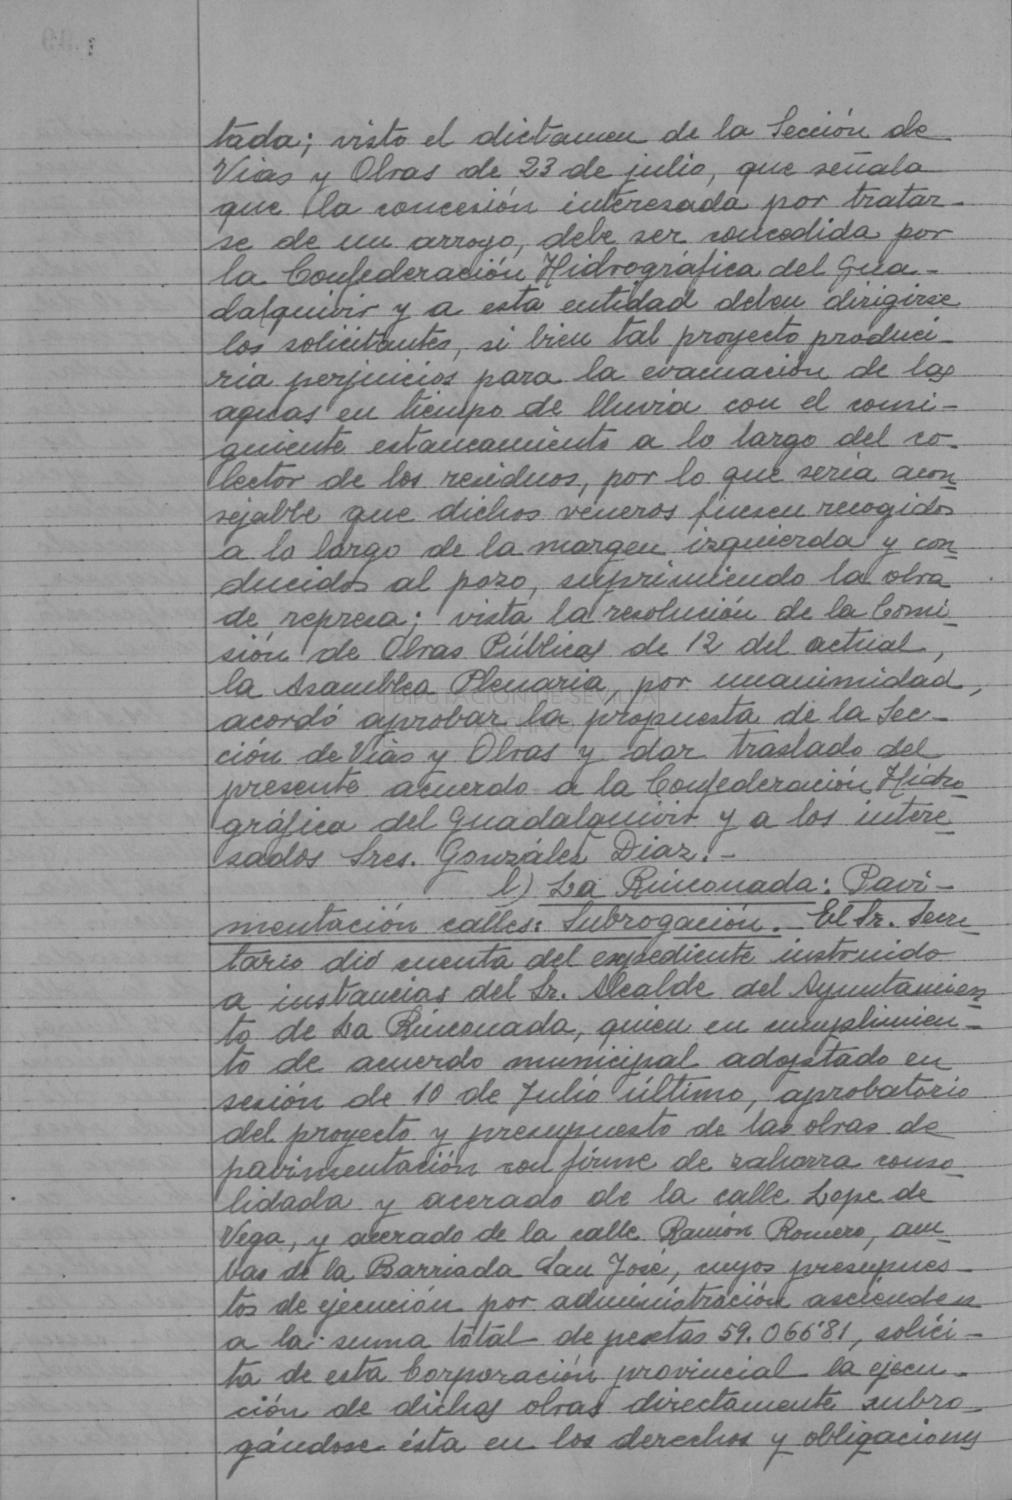 tada; visto el dictamen de la Sección de
Vias y Obras de 23 de julio, que señala
que la concesión interesada por tratar-
se de un arroyo, debe ser concedida por
la Confederación Hidrográfica del Gua-
dalquivir y a esta entidad deben dirigirse
los solicitantes, si bien tal proyecto produci-
ria perjuicios para la evacuación de las
aguas en tiempo de lluvia con el consi-
guiente estancamiento a lo largo del co-
lector de los residuos, por lo que seria acon
sejable que dichos veneros fuesen recogidos
a lo largo de la margen izquierda y con
ducidos al pozo, suprimiendo la obra
de represa; vista la resolución de la Comi
sión de Obras Públicas de 12 del actual,
la Asamblea Plenaria, por unanimidad,
DIPUTACIÓN DE SEVILLA
ARCHIVO
acordó aprobar la propuesta de la Sec-
ción de Vias y Obras y dar traslado del
presente acuerdo a la Confederación Hidro
gráfica del Guadalquivir y a los intere
sados Sres. González Diaz.-
l) La Rinconada: Pavi-
mentación calles: Subrogación.- El Sr. Secre
tario dió cuenta del expediente instruido
a instancias del Sr. Alcalde del Ayuntamien
to de La Rinconada, quien en cumplimien-
to de acuerdo municipal adoptado en
sesión de 10 de Julio último, aprobatorio
del proyecto y presupuesto de las obras de
pavimentación con firme de zahorra conso-
lidada y acerado de la calle Lope de
Vega, y acerado de la calle Ramón Romero, am
bas de la Barriada San José, cuyos presupues-
tos de ejecución por administración ascienden
a la suma total de pesetas 59.066'81, solici-
ta de esta Corporación provincial la ejecu-
ción de dichas obras directamente subro-
gándose ésta en los derechos y obligaciones